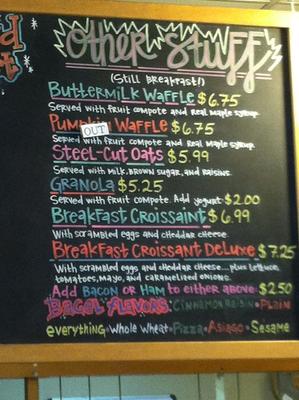 Other Stuff
(Still Breakfast!)
Buttermilk Waffle $6.75
Served with fruit compote and real maple syrup.
Pumpkin Waffle $6.75
OUT
Served with fruit compote and real maple syrup.
Steel-Cut Oats $5.99
Served with milk, brown sugar, and raisins.
Granola $5.25
Served with fruit compote. Add yogurt $2.00
Breakfast Croissaint $6.99
With scrambled eggs and cheddar cheese
Breakfast Croissant Deluxe $7.25
With scrambled eggs and cheddar cheese.... plus lettuce,
tomatoes, mayo, and caramelized onions.
Add Bacon or Ham to either above $2.50
Bagel Flavors: Cinnamon Raisin • Plain
everything • Whole Wheat • Pizza • Asiago • Sesame